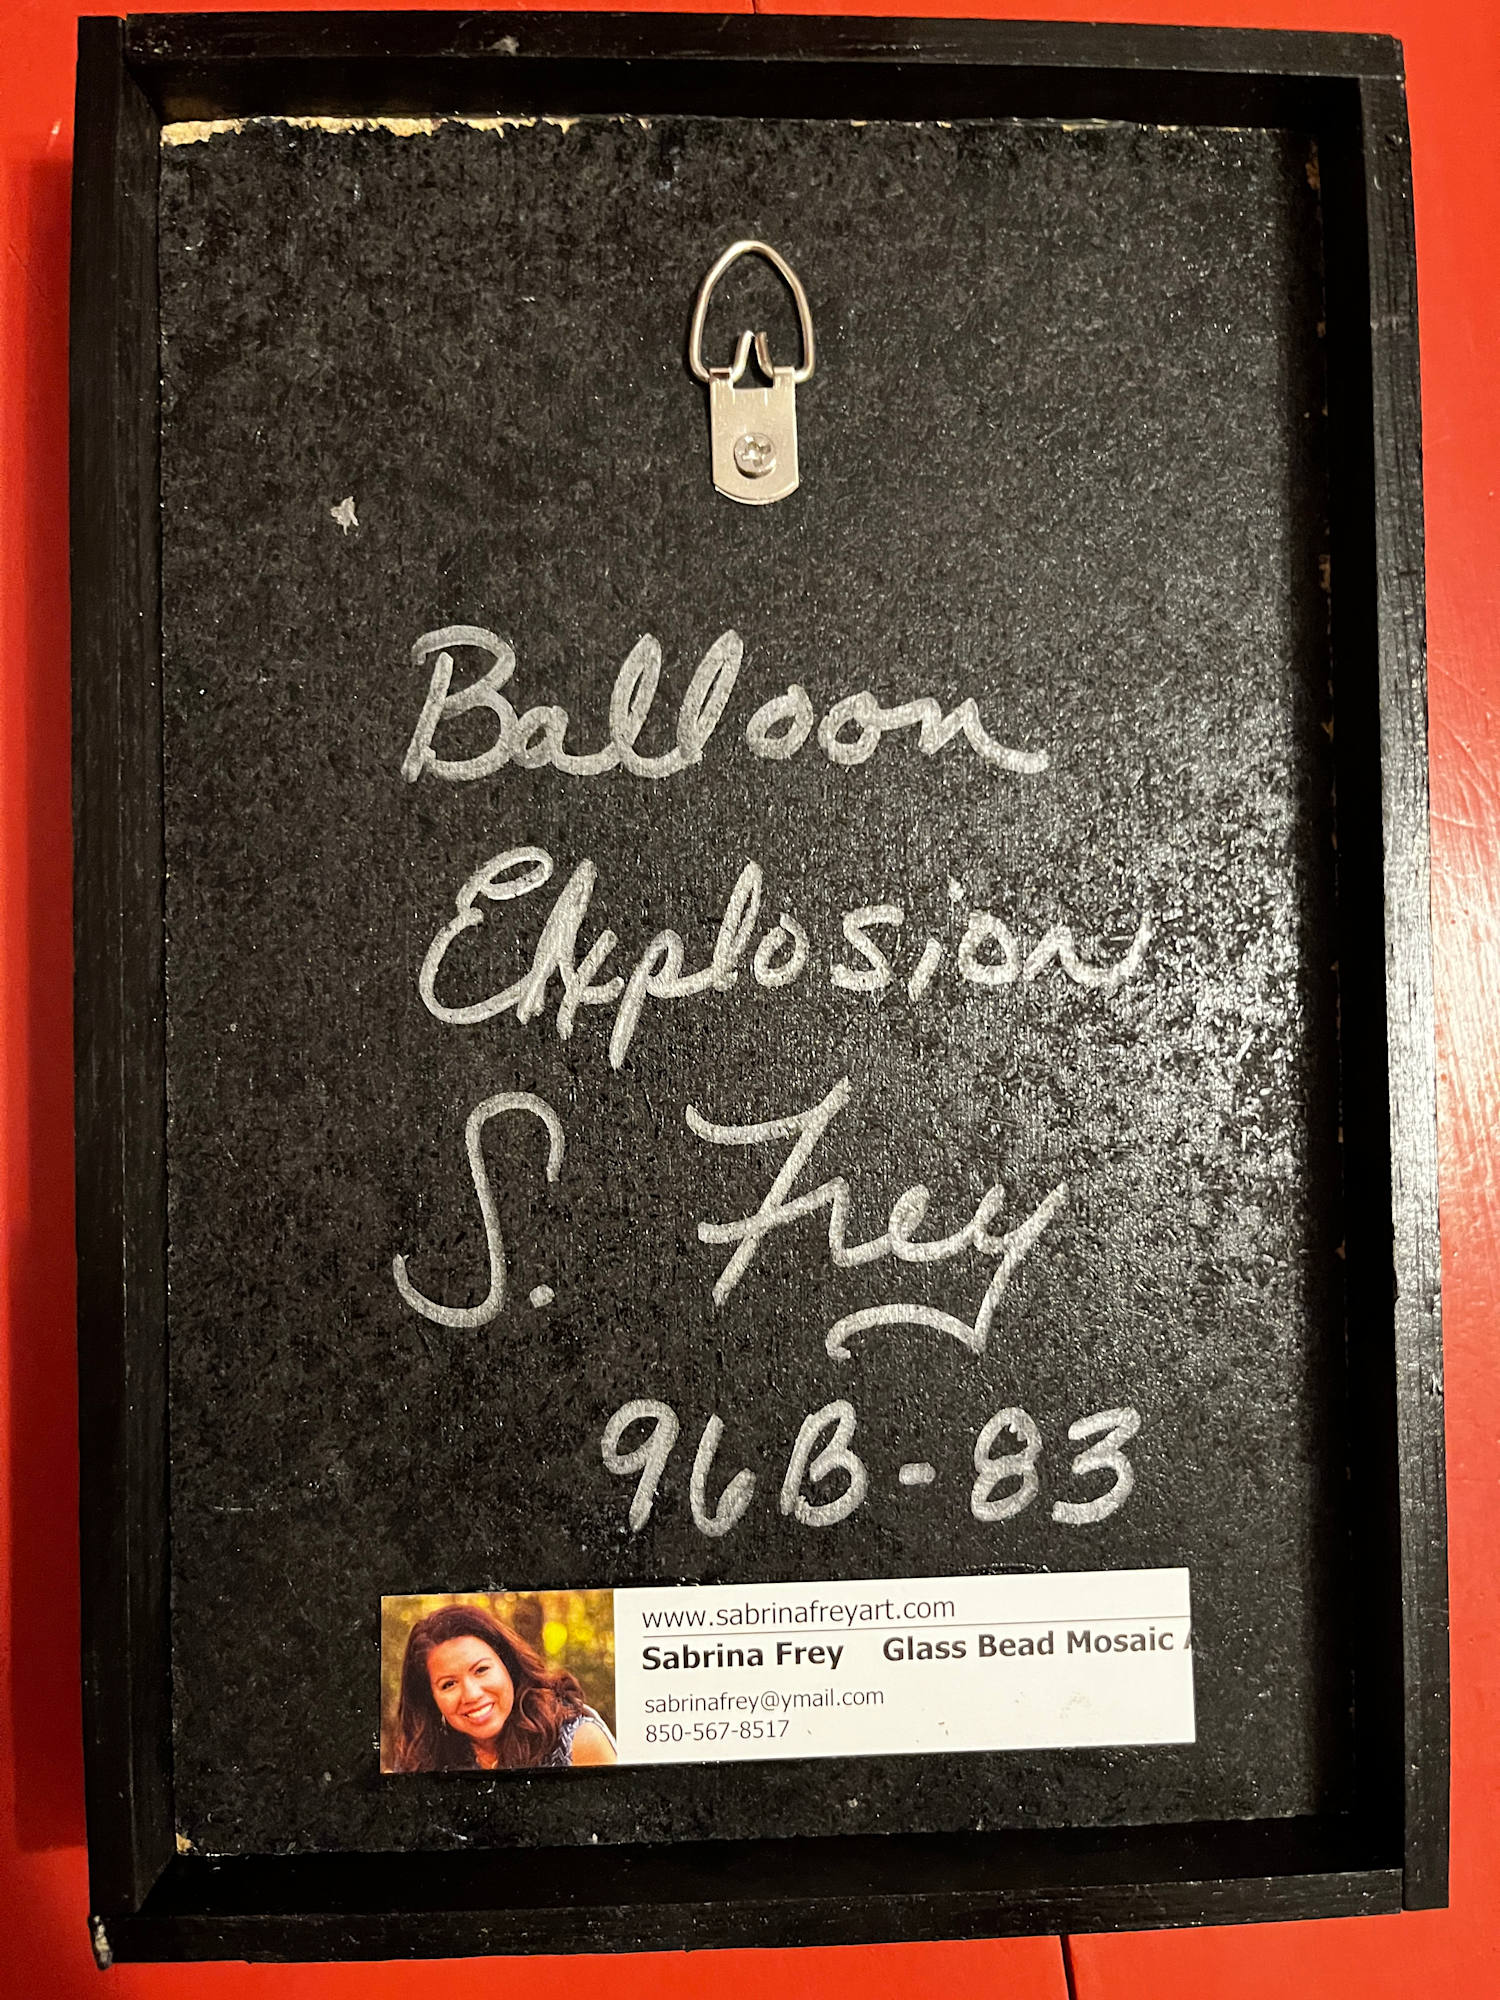 Balloon
Explosion
S. Frey
96B-83
www.sabrinafreyart.com
Sabrina Frey Glass Bead Mosaic
sabrinafrey@ymail.com
850-567-8517